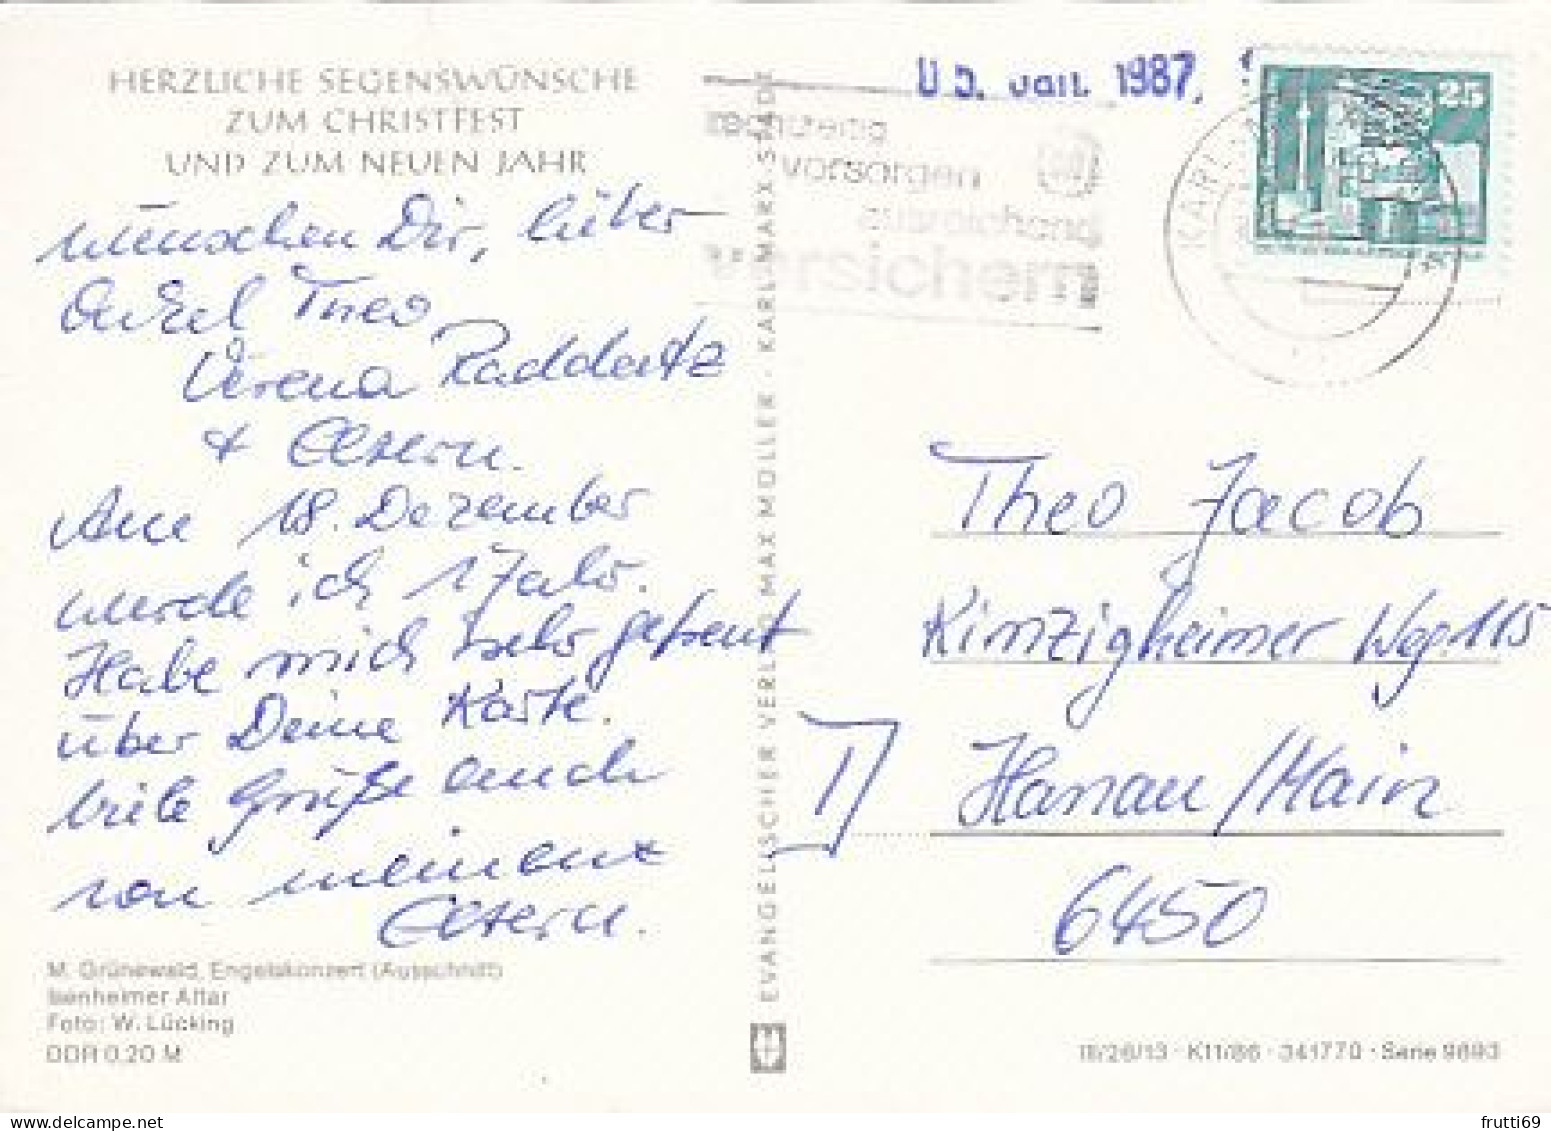 HERZLICHE SEGENSWÜNSCHE
ZUM CHRISTFEST
UND ZUM NEUEN JAHR
wünschen Dir, lieber
Onkel Theo
Verena Raddatz
+ Eltern.
Am 18. Dezember
wurde ich 17 Jahr.
Habe mich sehr gefreut
über Deine Karte.
Viele Grüße auch
von meinen
Eltern.
M. Grünewald, Engelskonzert (Ausschnitt)
Isenheimer Altar
Foto: W. Lücking
DDR 0,20 M
EVANGELISCHER VERLAG MAX MÜLLER · KARL-MARX-STADT
Jan. 1987
rechtzeitig
vorsorgen
ausreichend
versichern
KARL
25
Theo Jacob
Kinzigheimer Weg 115
Hanau/Main
6450
III/26/13 · K11/86 · 341770 · Serie 9693
frutti69